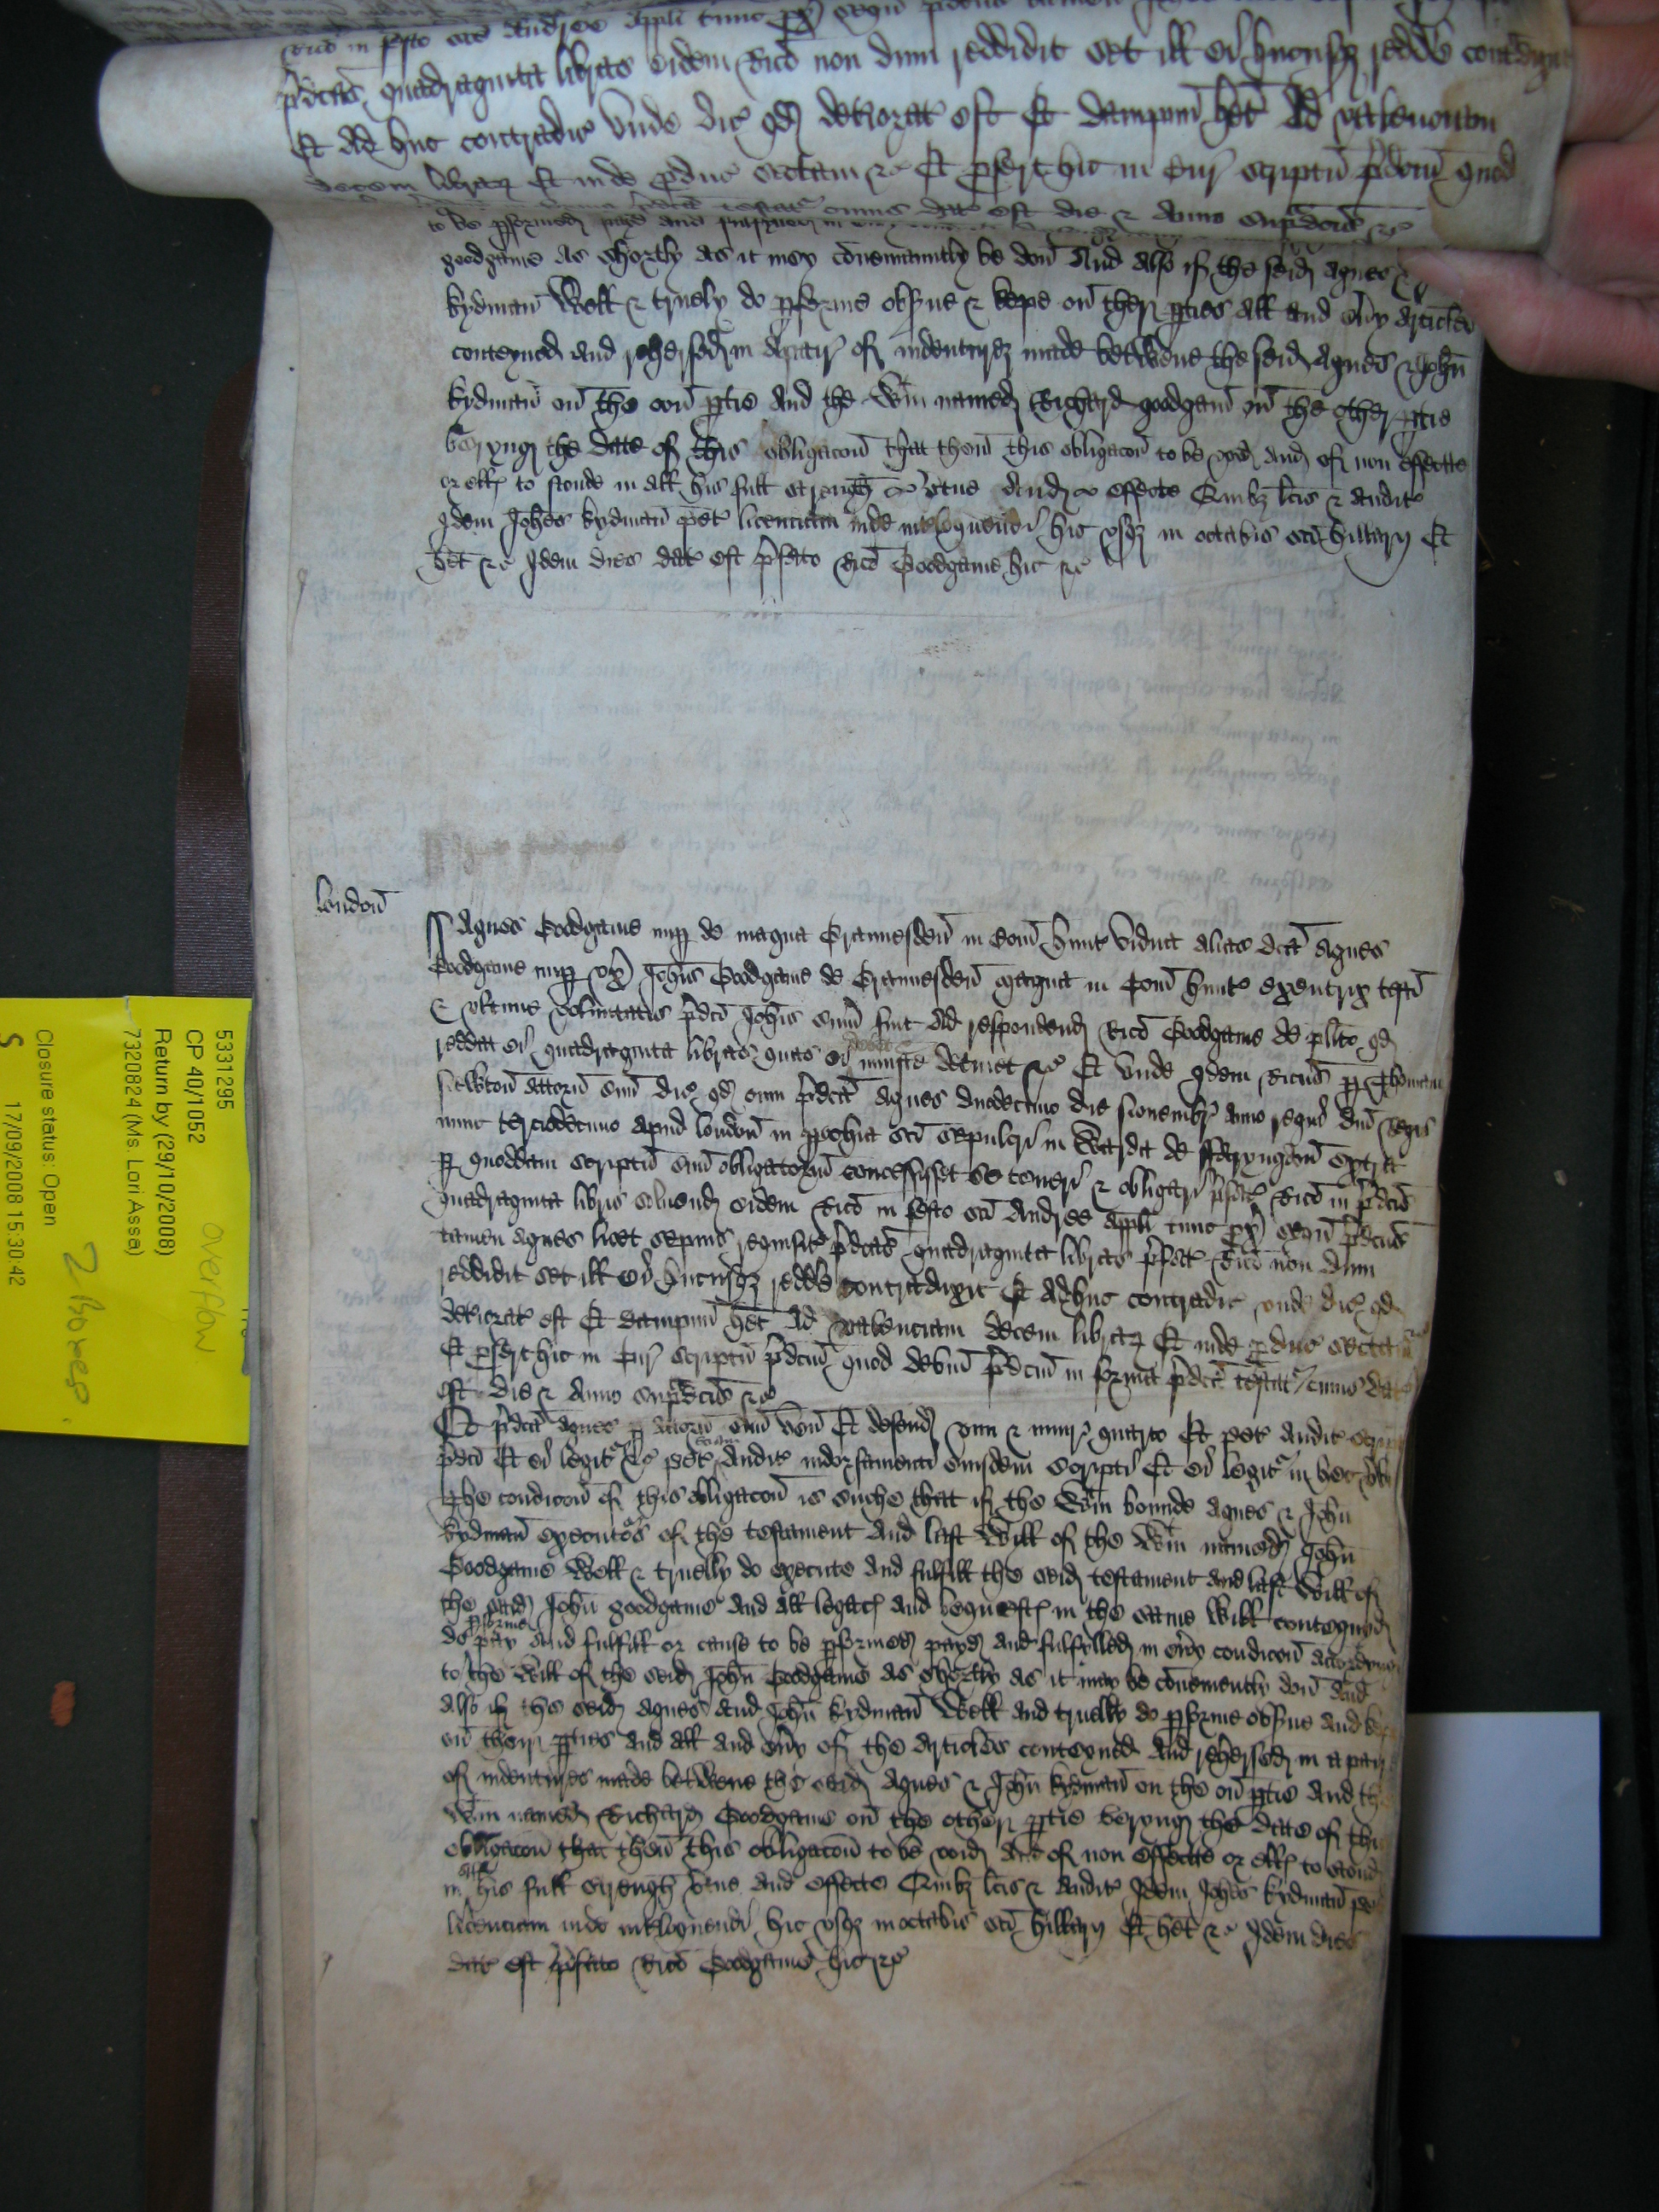 p̄dictas quadraginta libras eidem Ricō non dum reddidit set ill ei hucusqȝ reddē contradixit
Et adhuc contradic̄ unde dic̄ qd deteriorat̄ est Et dampnū het Ad valenciam
decem librar̄ Et inde pduc̄ sectam &c̄ Et pfert hic in Cur̄ scriptū p̄dcm̄ quod
testat̄ cuius dat̄ est die & Anno supradcis &c̄
to be pformed payd and
goodgame as shortly as it may conveniauntly be don And also if the seid agnes
kydman Well & truely do pforme obsue & kepe on ther pties all and evy articles
conteyned and rehersed in a paire of indenturez made betwene the seid Agnes & John
kydman on the oon ptie And the Wtin named Richard goodgam on the other ptie
beryng the date of this obligacon that then this obligacon to be void And of non effecte
or ell to stonde in all his full strength & vertue And effecte Quibȝ lcis & audit̄
Idem Johēs kydman pet̄ licenciam inde interloquendi hic usqȝ in octabis sci hillarij Et
het &c̄ Idem dies dat̄ est p̄fato Ricō Goodgame hic &c̄
london
Agnes Goodgame nup de magna Grannesden in Com̄ hunt̄ vidua alias dcā Agnes
Goodgame nup ux̄ Johīs Goodgame de Grannesden magna in Com̄ hunt̄ executrix testī
& ultime voluntatis p̄dcī Johīs sum̄ fuit ad respondend Ricō Goodgame de plito qd
reddat ei quadraginta libras quas ei debet & iniuste detinet &c̄ Et unde Idem Ricūs p Thomam
attorn̄ suū dic̄ qd cum p̄dcā Agnes duodecimo die Novembr̄ anno regni dnī Regis
nunc terciodecimo apud london in pochia scī Sepulcri in Warda de ffaryngdon extra
p quoddam scriptū suū obligatoriū concessisset se teneri & obligari p̄fat̄ Ricō in p̄dcis
quadraginta libris solvend eidem Ricō in festo scī Andree appli tunc px̄ seqū p̄dcā
tamen Agnes licet sepius requisit̄ p̄dcās quadraginta libras p̄fat̄ Ricō non dum
reddidit set ill ei hucusqȝ reddē contradixit Et adhuc contradic̄ unde dic̄ qd
deteriorat̄ est Et dampnū het ad valenciam decem librar̄ Et inde pduc̄ sectā &c̄
Et pfert hic in Cur̄ scriptū p̄dcm̄ quod debitū p̄dcm̄ in forma p̄dcā testat̄ cuius dat̄
est die & Anno supradcis &c̄
Et p̄dcā Agnes p attorn̄ suū ven̄ Et defend vim & iniur̄ quando Et pet̄ audit̄ scripti
p̄dcī Et ei legit̄ &c̄ pet̄ eciam audit̄ indorsamenti eiusdem scripti Et ei legit̄ in hec vba
The condicon of this obligacon is suche that if the Wtin bounde Agnes & John
kydman executors of the testament and last Will of the Wtin named John
Goodgame Well & truelly do execute and fulfill the seid testament and last Will of
the said John goodgame and all legac̄ and bequest̄ in the same Will conteyned
do pforme pay and fulfill or cause to be pformed payd and fulfylled in evy condicon accordyng
to the Will of the seid John Goodgame as shortly as it may be conveniently don And
also if the seid Agnes and John kydman Well and truelly do pforme obsue and kepe
on their pties and all and evy of the articles conteyned And rehersed in a pair
of indentures made betwene the seid Agnes & John kydman on the on ptie And the
Wtin named Richard Goodgame on the other ptie beryng the date of this
obligacon that then this obligacon to be void And of non effecte or ell to stond
in all his full strength vtue And effecte Quibȝ lcis & audit̄ Idem Johēs kydman pet̄
licenciam inde interloquendi hic usqȝ in octabis scī hillarij Et het &c̄ Idem dies
dat̄ est p̄fato Ricō Goodgame hic &c̄
5331295
CP 40/1052
Return by (29/10/2008)
7320824 (Ms. Lori Assa)
Closure status: Open
S 17/09/2008 15:30:42
overflow
2 Boxes.